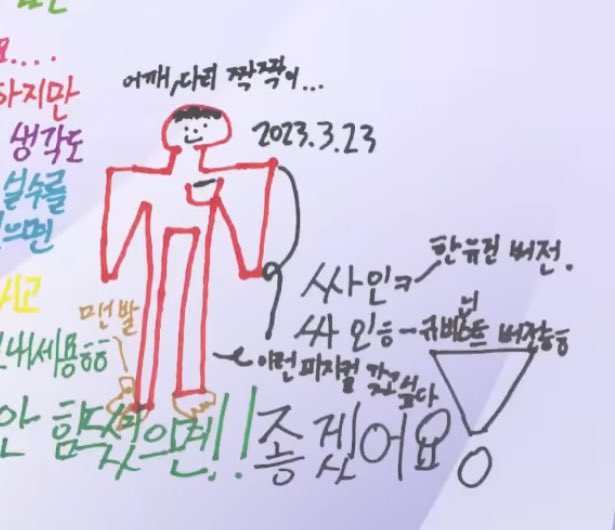 어깨, 다리 짝짝이...
2023.3.23
하지만
생각도
실수를
으면
시고
맨발
내세용ㅎㅎ
싸인ㅋ
한유진 버전.
싸인ㅎ
버전ㅎㅎ
이런 피지컬 갖고 싶다
안 힘 으면!! 좋겠어요